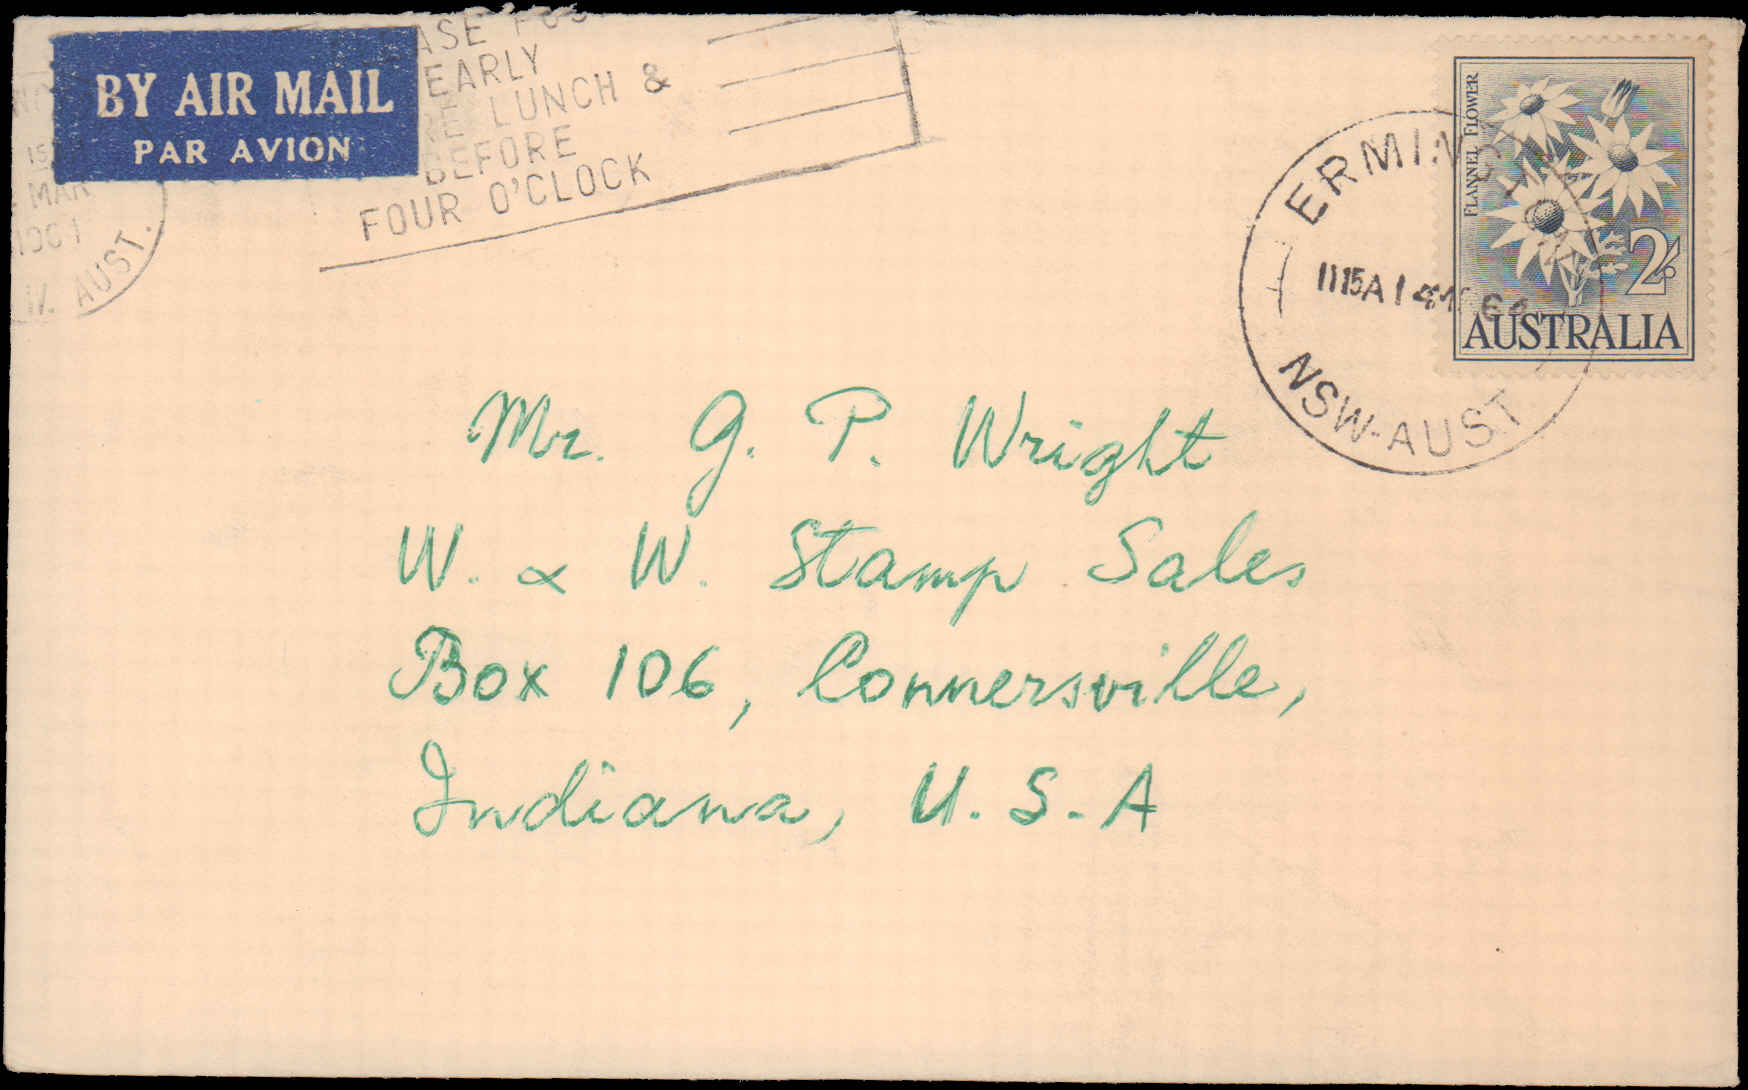 BY AIR MAIL
PAR AVION
EARLY
LUNCH &
BEFORE
FOUR O'CLOCK
MAR
AUST.
FLANNEL FLOWER
2/-
AUSTRALIA
1115A 14
NSW-AUST
Mr. G. P. Wright
W. & W. Stamp Sales
Box 106, Connersville,
Indiana, U. S. A